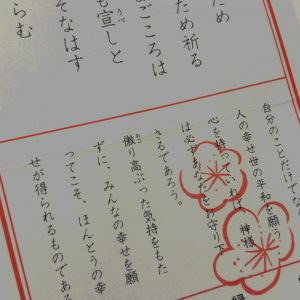 ため
ため祈る
ごころは
も宣しと
うべ
そなはす
らむ
自分のことだけでな
人の幸せ世の平和を願
心を持っていれば、神様
は必ずあなたをお守り下
さるであろう。
傲り高ぶった気持をもた
おご
ずに、みんなの幸せを願
ってこそ、ほんとうの幸
せが得られるものである